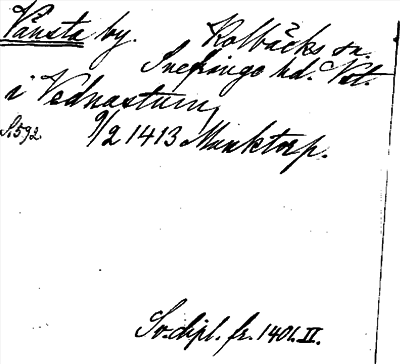 Vänsta by. Kolbäcks sn.
Snefringe hd. Vstm.
i Vednastum
S. 592. 9/2 1413 Munktorp.
Sv. dipl. fr. 1401. II.